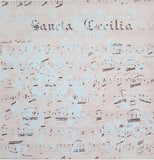 Sancta Cecilia